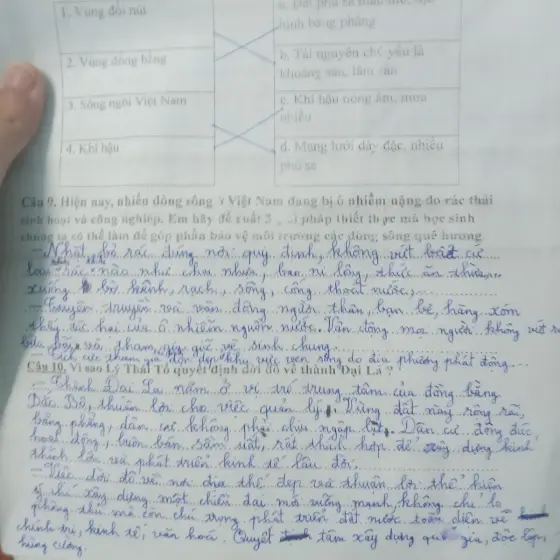 1. Vùng đồi núi
hình bằng phẳng
2. Vùng đồng bằng
b. Tài nguyên chủ yếu là
khoáng sản, lâm sản
3. Sông ngòi Việt Nam
c. Khí hậu nóng ẩm, mưa
nhiều
4. Khí hậu
d. Mạng lưới dày đặc, nhiều
phù sa
Câu 9. Hiện nay, nhiều dòng sông ở Việt Nam đang bị ô nhiễm nặng do rác thải
sinh hoạt và công nghiệp. Em hãy đề xuất 3 pháp thiết thực mà học sinh
chúng ta có thể làm để góp phần bảo vệ môi trường các dòng sông quê hương.
- Nhặt, bỏ rác đúng nơi quy định, không vứt bất cứ
loại rác nào như chai nhựa, bao ni lông, thức ăn thừa...
xuống bờ kênh, rạch, sông, cống thoát nước,...
- Tuyên truyền và vận động người thân, bạn bè, hàng xóm
thấy tác hại của ô nhiễm nguồn nước. Vận động mọi người không vứt
bừa bãi và tham gia giữ vệ sinh chung.
- Tích cực tham gia dọn dẹp khu vực ven sông do địa phương phát động...
Câu 10. Vì sao Lý Thái Tổ quyết định dời đô về thành Đại La ?
- Thành Đại La nằm ở vị trí trung tâm của đồng bằng
Bắc Bộ, thuận lợi cho việc quản lý. Vùng đất này rộng rãi,
bằng phẳng, dân cư không phải chịu ngập lụt. Dân cư đông đúc,
hoạt động, buôn bán sầm uất, rất thích hợp để xây dựng kinh
thành lớn và phát triển kinh tế lâu dài.
- Việc dời đô về nơi địa thế đẹp và thuận lợi thể hiện
ý chí xây dựng một chiến đại mới vững mạnh, không chỉ lo
phòng thủ mà còn chú trọng phát triển đất nước toàn diện về
chính trị, kinh tế, văn hoá. Quyết tâm xây dựng quốc gia, độc lập,
hùng cường.